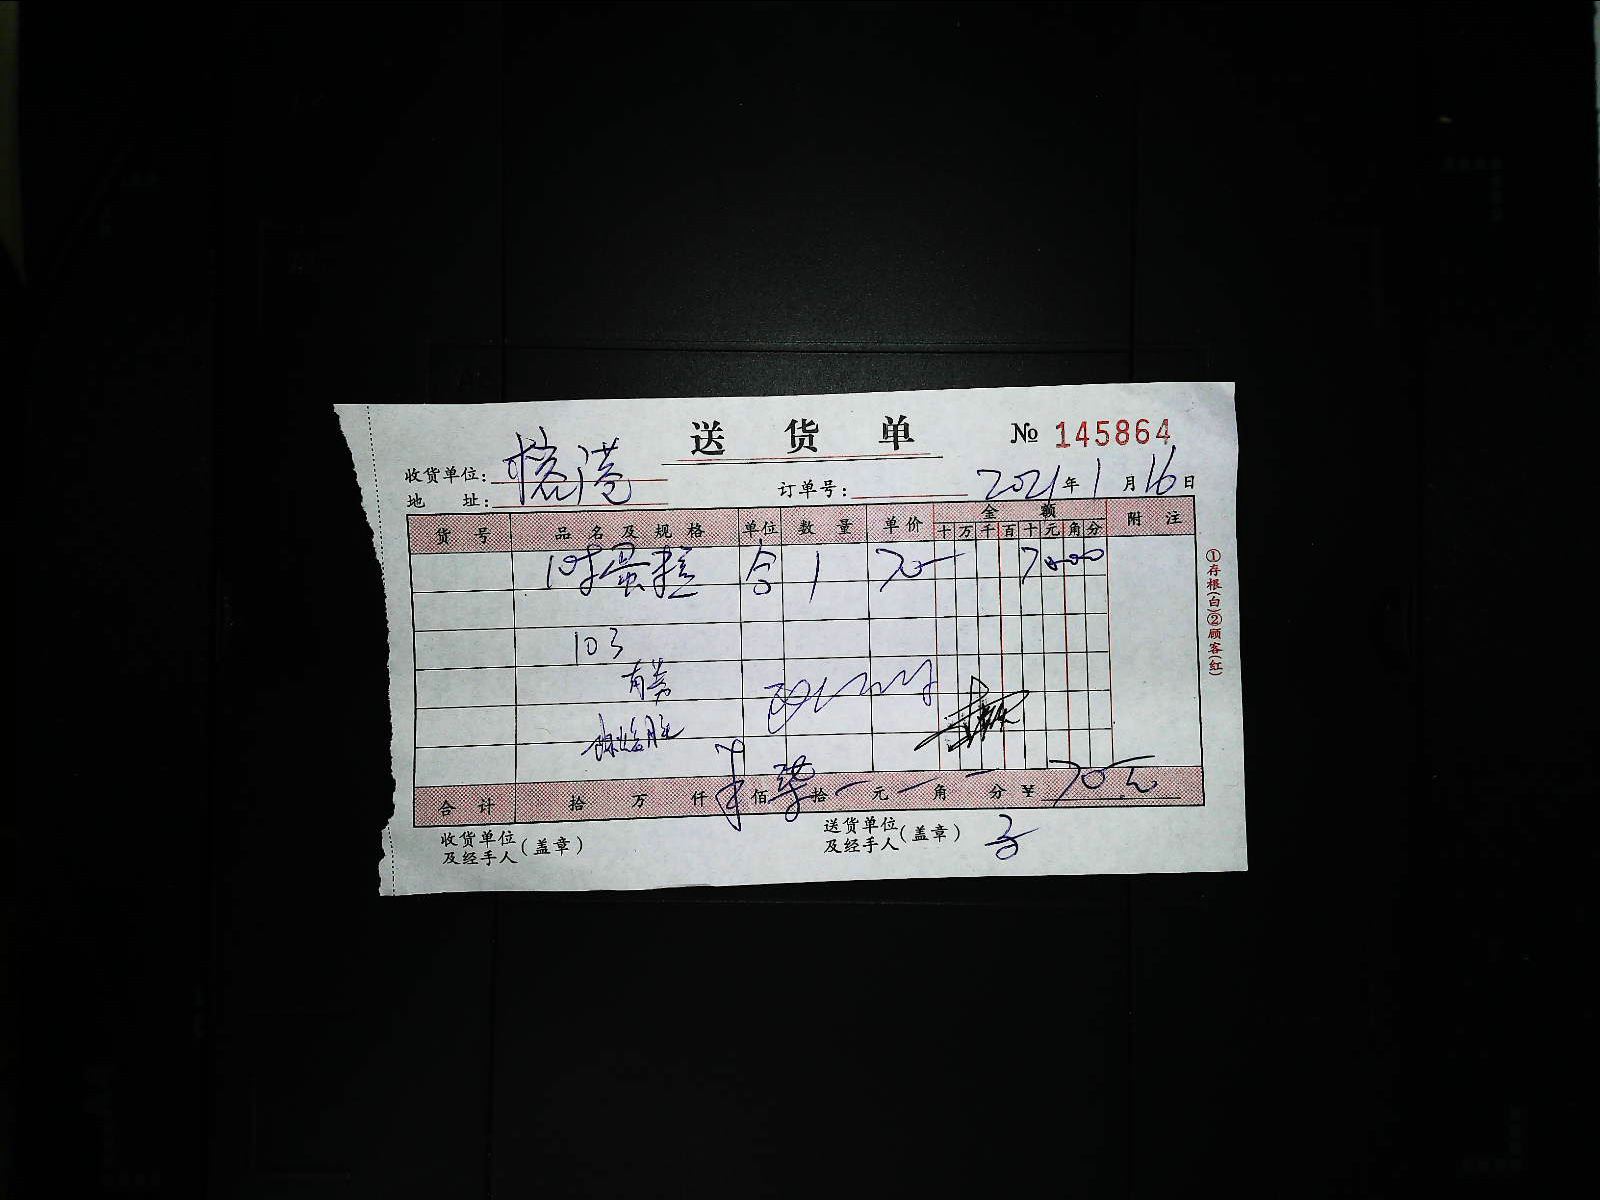 送货单
№ 145864
收货单位: 榕港
地址:
订单号: 2021年1月16日
货号 品名及规格 单位 数量 单价 金额 附注
十万千百十元角分
10寸蛋糕 合 1 70- 70.00
103
合计 拾 万 仟 佰 柒拾 - 元 - 角 - 分 ¥ 70元
收货单位及经手人(盖章)
送货单位及经手人(盖章)
①存根(白)②顾客(红)